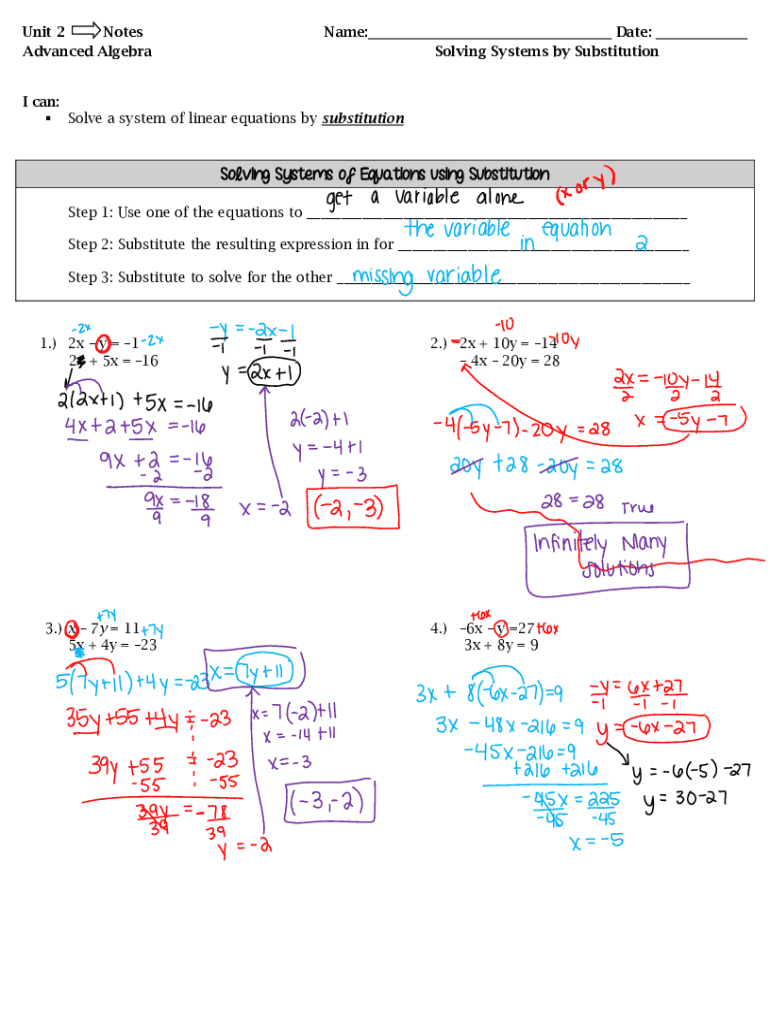 Unit 2 Notes Name: Date:
Advanced Algebra Solving Systems by Substitution
I can:
▪ Solve a system of linear equations by substitution
Solving Systems of Equations using Substitution
Step 1: Use one of the equations to get a variable alone (x or y)
Step 2: Substitute the resulting expression in for the variable in equation 2
Step 3: Substitute to solve for the other missing variable
-2x
1.) 2x – y = –1 -2x
+ 5x = –16
2(2x+1) + 5x = -16
4x + 2 + 5x = -16
9x + 2 = -16
- 2 -2
9x = -18
9 9
x = -2
-y = -2x -1
-1 -1 -1
y = 2x + 1
2(-2)+1
y = -4+1
y = -3
(-2, -3)
-10
2.) 2x + 10y = –14 -10y
– 4x – 20y = 28
2x = -10y - 14
2 2 2
x = -5y - 7
-4(-5y-7) -20y = 28
20y + 28 -20y = 28
28 = 28 True
Infinitely Many
Solutions
+7y
3.) x – 7y = 11 +7y
5x + 4y = –23
5(7y+11)+4y = -23
x = 7y + 11
35y +55 +4y = -23
39y +55 = -23
-55 -55
39y = -78
39 39
y = -2
x = 7(-2)+11
x = -14 +11
x = -3
(-3, -2)
+6x
4.) –6x – y =27 +6x
3x + 8y = 9
3x + 8(-6x-27)=9
3x -48x -216 = 9
-45x -216 = 9
+216 +216
-45x = 225
-45 -45
x = -5
-y = 6x +27
-1 -1 -1
y = -6x -27
y = -6(-5) -27
y = 30-27